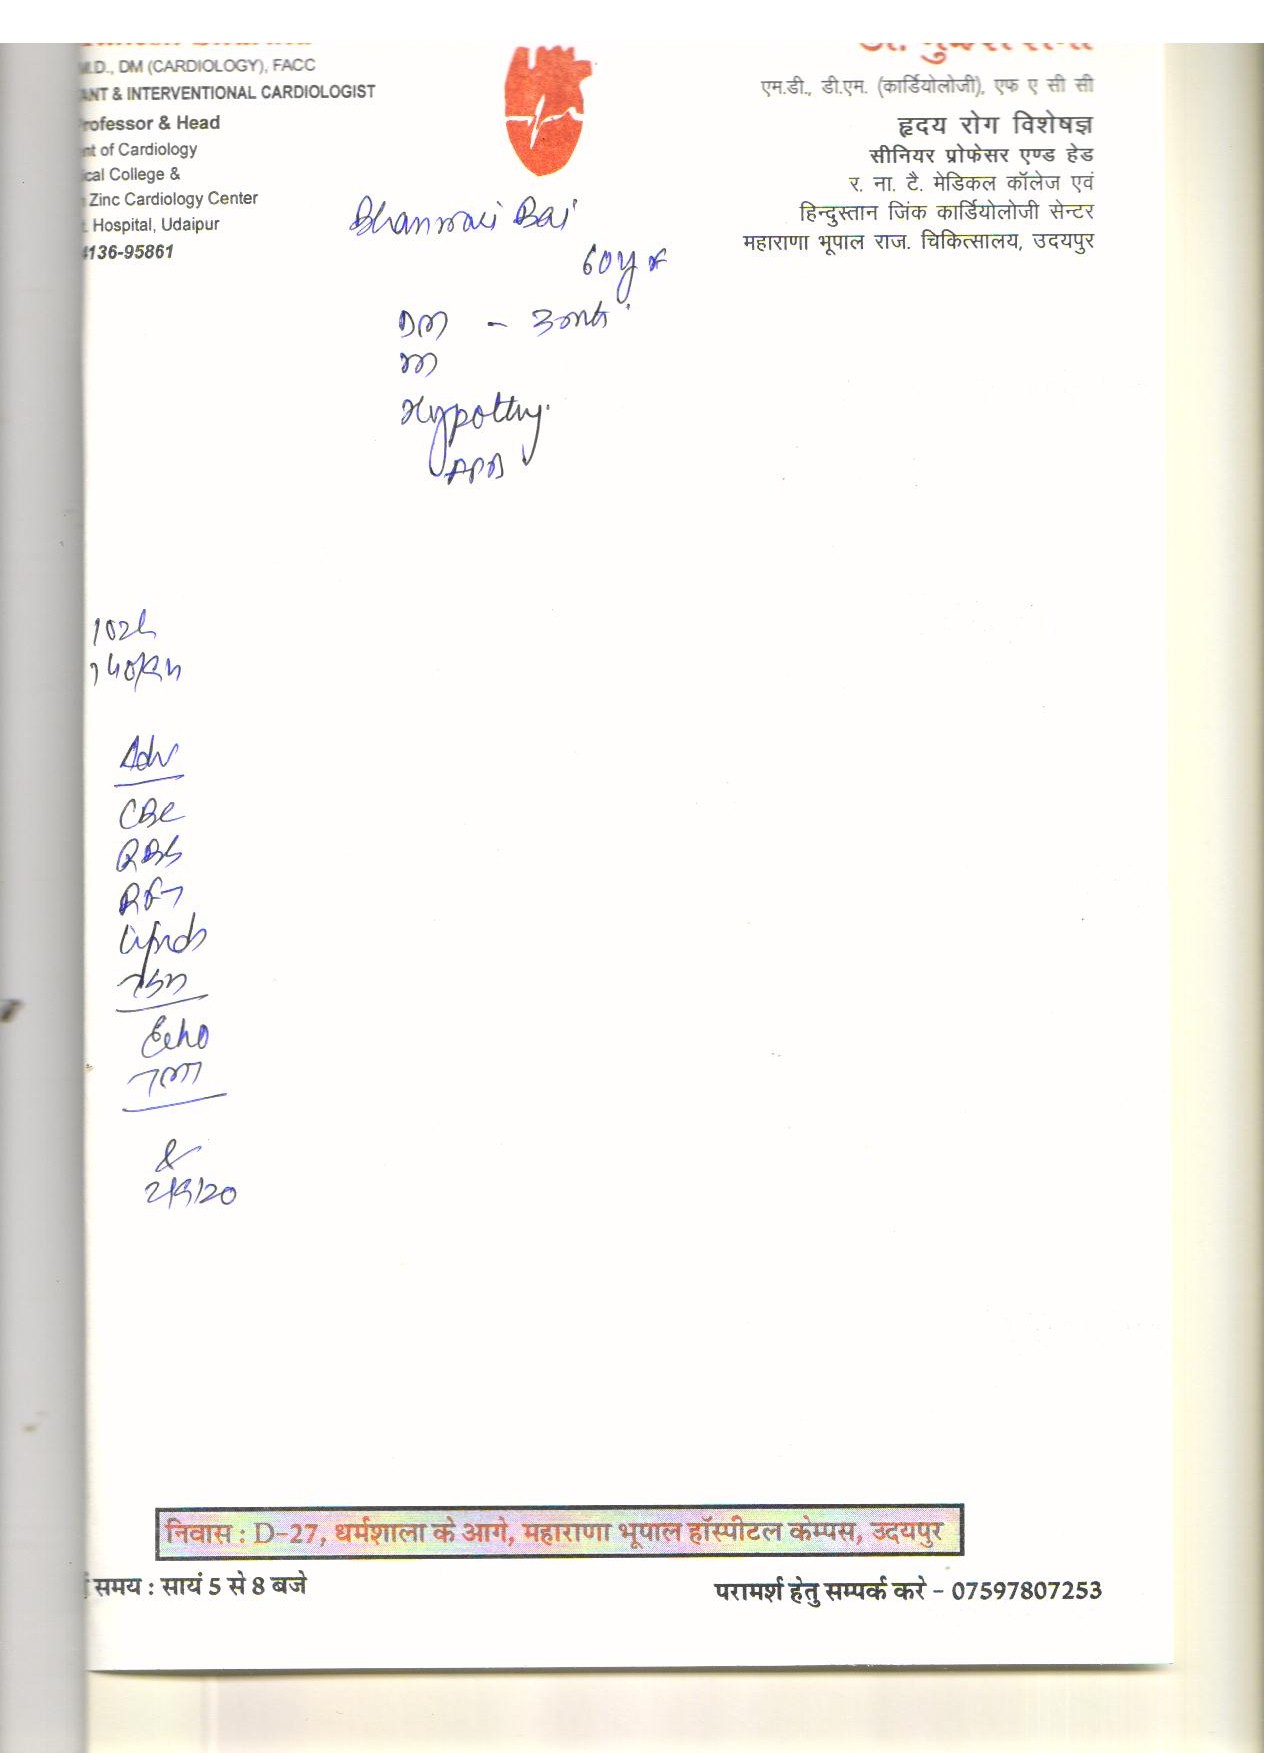 M.D., DM (CARDIOLOGY), FACC
ANT & INTERVENTIONAL CARDIOLOGIST
rofessor & Head
nt of Cardiology
ical College &
Zinc Cardiology Center
. Hospital, Udaipur
4136-95861
एम.डी., डी.एम. (कार्डियोलोजी), एफ ए सी सी
हृदय रोग विशेषज्ञ
सीनियर प्रोफेसर एण्ड हेड
र. ना. टै. मेडिकल कॉलेज एवं
हिन्दुस्तान जिंक कार्डियोलोजी सेन्टर
महाराणा भूपाल राज. चिकित्सालय, उदयपुर
Bhanwari Bai
60y
DM -
Hypothy.
Adv
CBC
RBS
RFT
Lipids
TSH
Echo
TMT
&
2/9/20
निवास : D-27, धर्मशाला के आगे, महाराणा भूपाल हॉस्पीटल केम्पस, उदयपुर
समय : सायं 5 से 8 बजे
परामर्श हेतु सम्पर्क करे - 07597807253